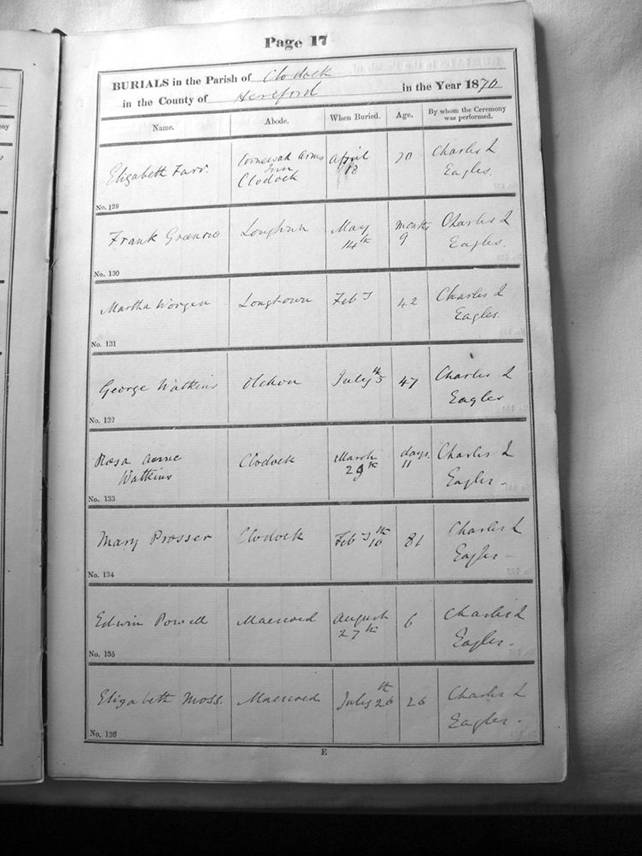 Page 17
BURIALS in the Parish of Clodock
in the County of Hereford in the Year 1870
Name. Abode. When Buried. Age. By whom the Ceremony was performed.
Elizabeth Farr. Arms Inn Clodock April 18 70 Charles L Eagles.
No. 129
Frank Longtown May 14th months 9 Charles L Eagles.
No. 130
Martha Worgen Longtown Feby 42 Charles L Eagles.
No. 131
George Watkins Olchon July 5th 47 Charles L Eagles
No. 132
Rosa Annie Watkins Clodock March 29th days 11 Charles L Eagles.
No. 133
Mary Prosser Clodock Feby 10th 81 Charles L Eagles
No. 134
Edwin Powell Maescoed August 27th 6 Charles L Eagles.
No. 135
Elizabeth Moss. Maescoed July 26th 26 Charles L Eagles.
No. 136
E